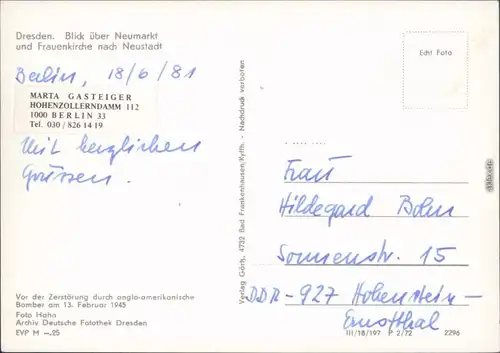 Dresden. Blick über Neumarkt
und Frauenkirche nach Neustadt
Berlin, 18/6/81
MARTA GASTEIGER
HOHENZOLLERNDAMM 112
1000 BERLIN 33
Tel. 030/826 14 19
Mit herzlichen
Grüssen.
Vor der Zerstörung durch anglo-amerikanische
Bomber am 13. Februar 1945
Foto Hahn
Archiv Deutsche Fotothek Dresden
EVP M –.25
Verlag Görtz, 4732 Bad Frankenhausen/Kyffh. - Nachdruck verboten
Echt Foto
Frau
Hildegard Bohn
Sonnenstr. 15
DDR-927 Hohenstein-
Ernstthal
III/18/197 P 2/72 2296